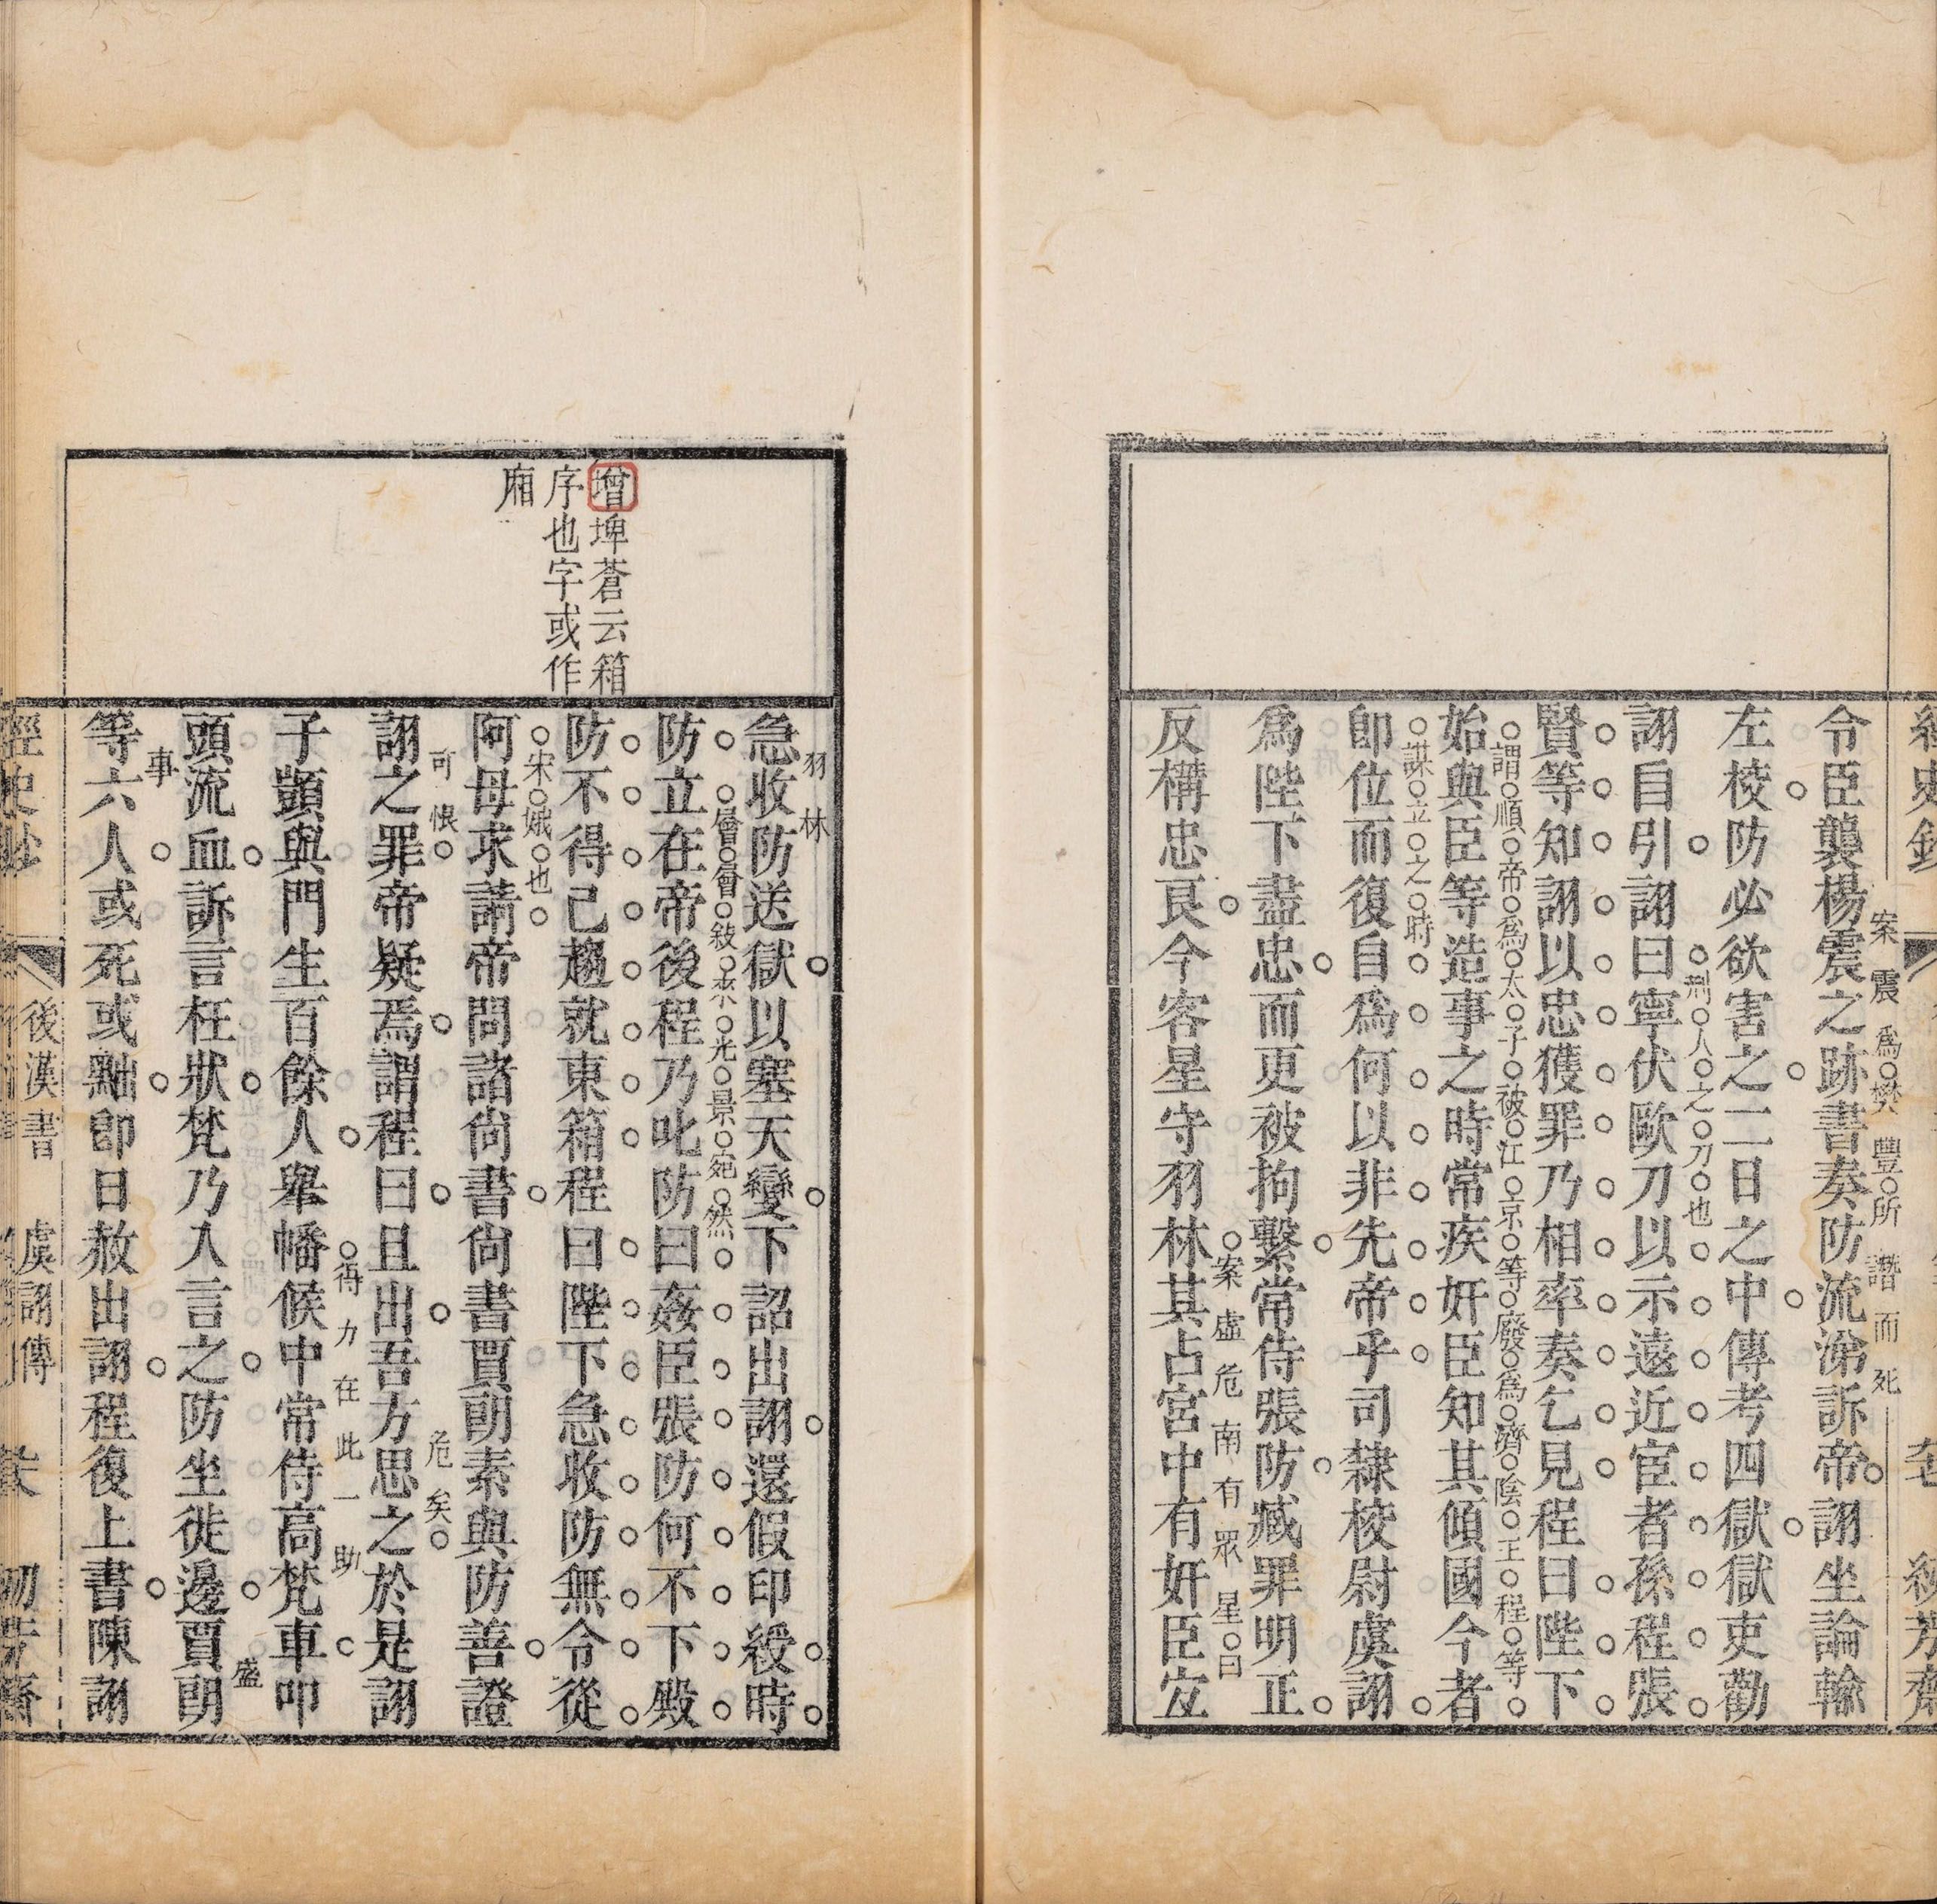 令臣襲楊震之跡書奏防流涕訴帝詡坐論輸
案震爲樊豐所譖而死
左校防必欲害之二日之中傳考四獄獄吏勸
詡自引詡曰寧伏歐刀以示遠近宦者孫程張
刑人之刀也
賢等知詡以忠獲罪乃相率奏乞見程曰陛下
始與臣等造事之時常疾奸臣知其傾國今者
謂順帝爲太子被江京等廢爲濟陰王程等
謀立之時
卽位而復自爲何以非先帝乎司隸校尉虞詡
爲陛下盡忠而更被拘繫常侍張防臧罪明正
反構忠良今客星守羽林其占宮中有奸臣宜
案虛危南有眾星曰
羽林
急收防送獄以塞天變下詔出詡還假印綬時
防立在帝後程乃叱防曰姦臣張防何不下殿
層層敍來光景宛然
增埤蒼云箱
序也字或作
廂
防不得已趨就東箱程曰陛下急收防無令從
阿母求請帝問諸尙書尙書賈朗素與防善證
宋娥也
詡之罪帝疑焉謂程曰且出吾方思之於是詡
可恨
危矣
子顗與門生百餘人舉幡候中常侍高梵車叩
得力在此一助
頭流血訴言枉狀梵乃入言之防坐徙邊賈朗
等六人或死或黜卽日赦出詡程復上書陳詡
事
盛
後漢書
虞詡傳